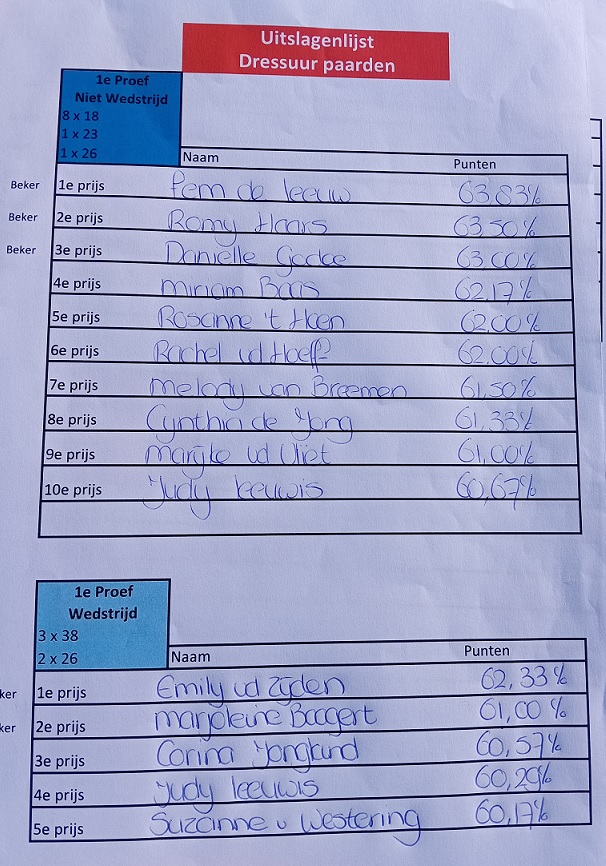 Uitslagenlijst
Dressuur paarden
1e Proef
Niet Wedstrijd
8 x 18
1 x 23
1 x 26
Naam Punten
Beker 1e prijs Pem de leeuw 63,83%
Beker 2e prijs Romy Haars 63,50%
Beker 3e prijs Danielle 63,00%
4e prijs miriam Baas 62,17%
5e prijs Rosanne 't Hoen 62,00%
6e prijs Rachel vd Hoeff 62,00%
7e prijs melody van Breemen 61,50%
8e prijs Cynthia de Jong 61,33%
9e prijs marijke vd Vliet 61,00%
10e prijs Judy leeuwis 60,67%
1e Proef
Wedstrijd
3 x 38
2 x 26
Naam Punten
ker 1e prijs Emily vd Zijden 62,33%
ker 2e prijs marjoleine Bogert 61,00%
3e prijs Corina Jongkind 60,57%
4e prijs Judy leeuwis 60,29%
5e prijs Suzanne v Westering 60,17%